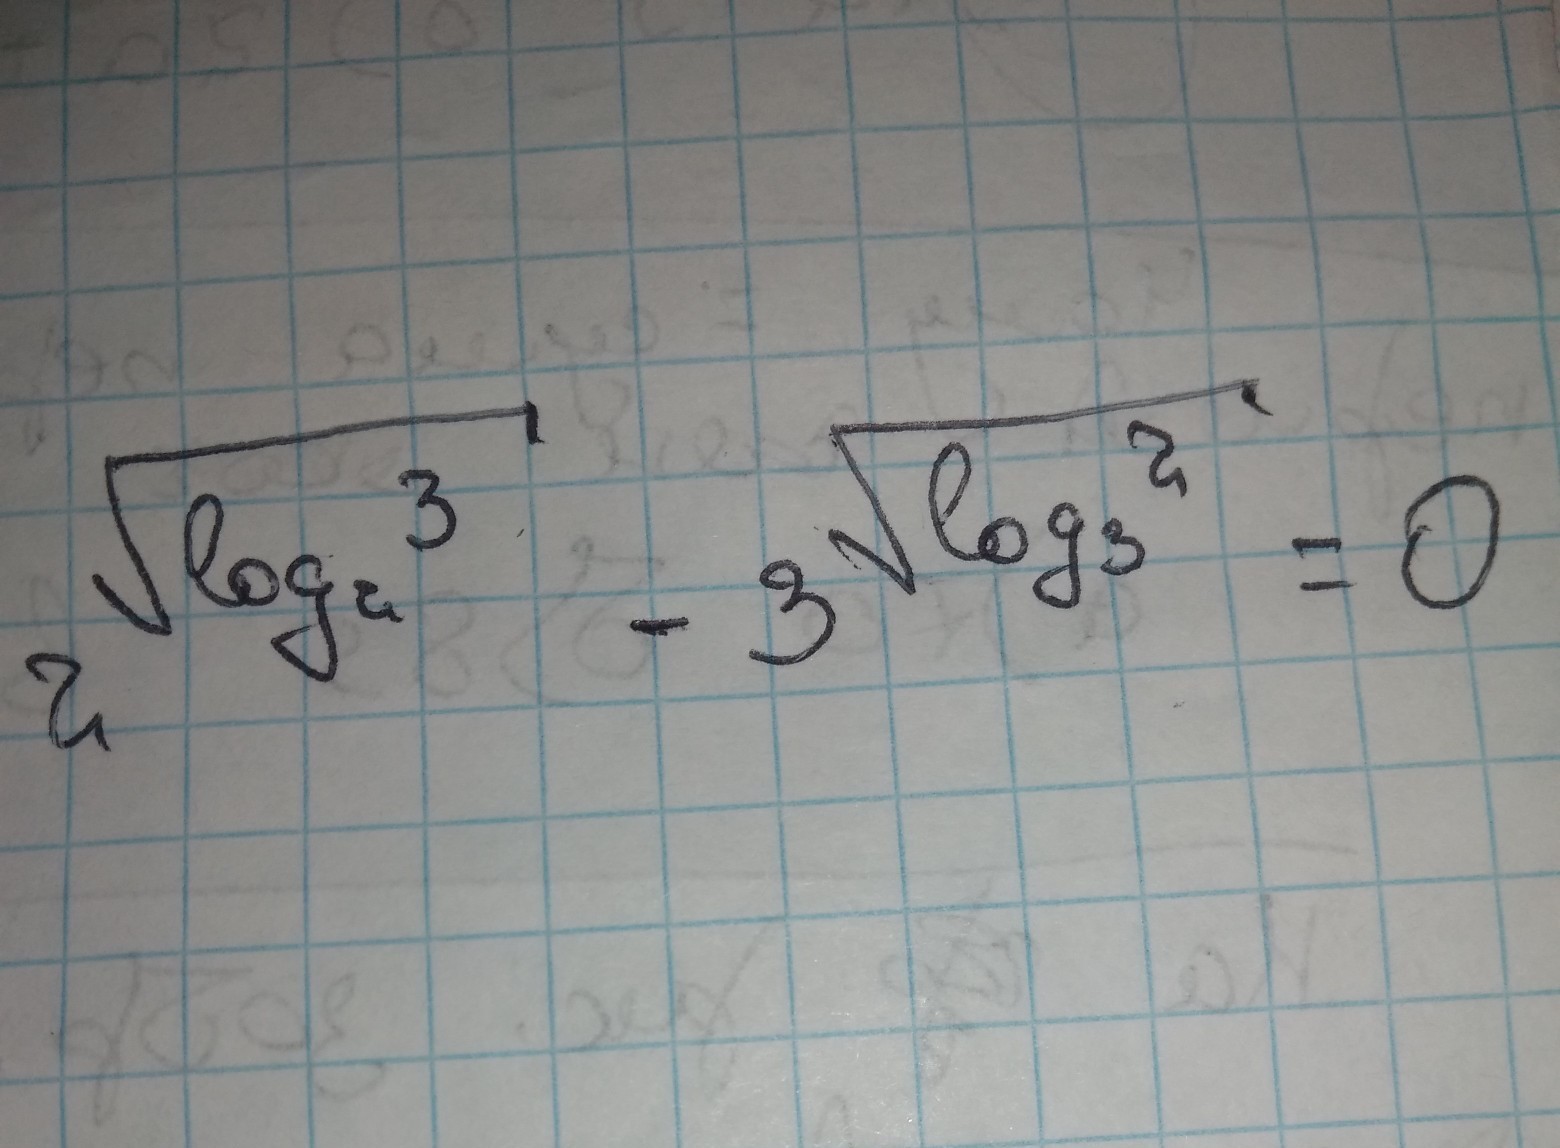 2^√(log₂3) - 3^√(log₃2) = 0